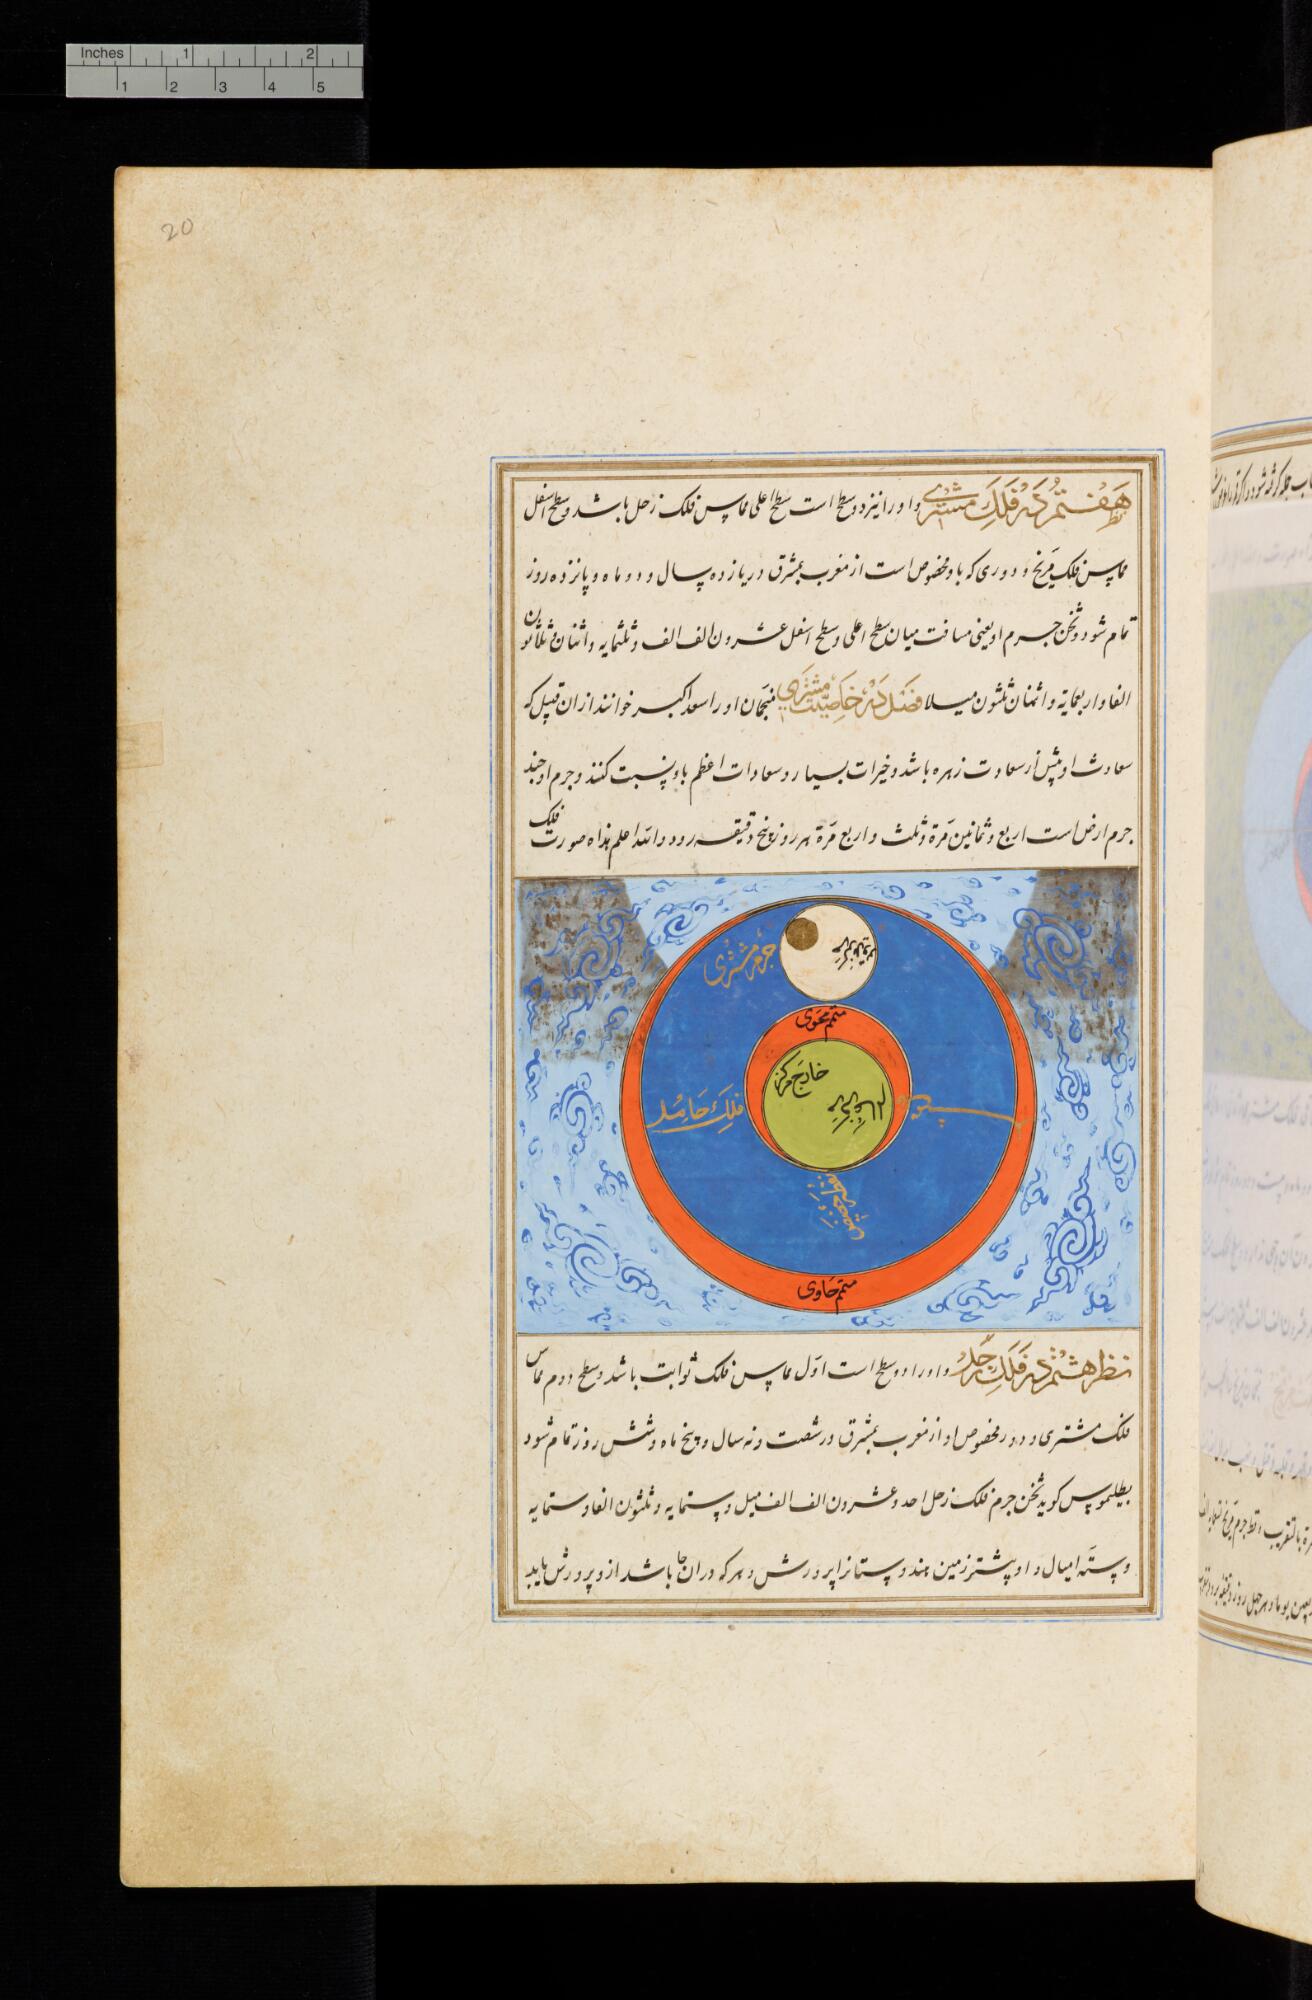 Inches 1 2
1 2 3 4 5
20
نظر هفتم در فلک مشتری و او را نیز دو سطح است سطح اعلی مماس فلک زحل باشد و سطح اسفل
مماس فلک مریخ و دوری که باو مخصوص است از مغرب بمشرق در یازده سال و دو ماه و پانزده روز
تمام شود و ثخن جرم او یعنی مسافت میان سطح اعلی و سطح اسفل عشرون الف الف و ثلثمایه و اثنان و ثلاثون
الفا و اربعمایة و اثنان ثلثون میلا فصل در خاصیت مشتری منجمان او را سعد اکبر خوانند از ان قبل که
سعادت او بیش از سعادت زهره باشد و خیرات بسیار و سعادات اعظم باو نسبت کنند و جرم او چند
جرم ارض است اربع و ثمانین مرة و ثلث و اربع مرة هر روز پنج دقیقه رود والله اعلم هذاه صورت فلک
جرم مشتری
متمم محوی
خارج مرکز
فلک حامل
متمم حاوی
نظر هشتم در فلک زحل و او را دو سطح است اول مماس فلک ثوابت باشد و سطح دوم مماس
فلک مشتری و دور مخصوص او از مغرب بمشرق در شصت و نه سال و پنج ماه و شش روز تمام شود
بطلیموس کوید ثخن جرم فلک زحل احد و عشرون الف الف میل و ستمایه و ثلثون الفا و ستمایه
و سته امیال و او بیشتر زمین هندوستانرا پرورش و هر که در ان جا باشد از و پرورش یابد